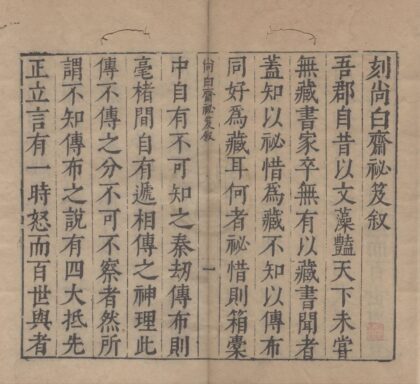 刻尚白齋祕笈叙
吾郡自昔以文藻豔天下未嘗
無藏書家卒無有以藏書聞者
蓋知以祕惜為藏不知以傳布
同好為藏耳何者祕惜則箱橐
尚白齋祕笈叙
一
中自有不可知之秦劫傳布則
毫楮間自有遞相傳之神理此
傳不傳之分不可不察者然所
謂不知傳布之說有四大抵先
正立言有一時怒而百世與者